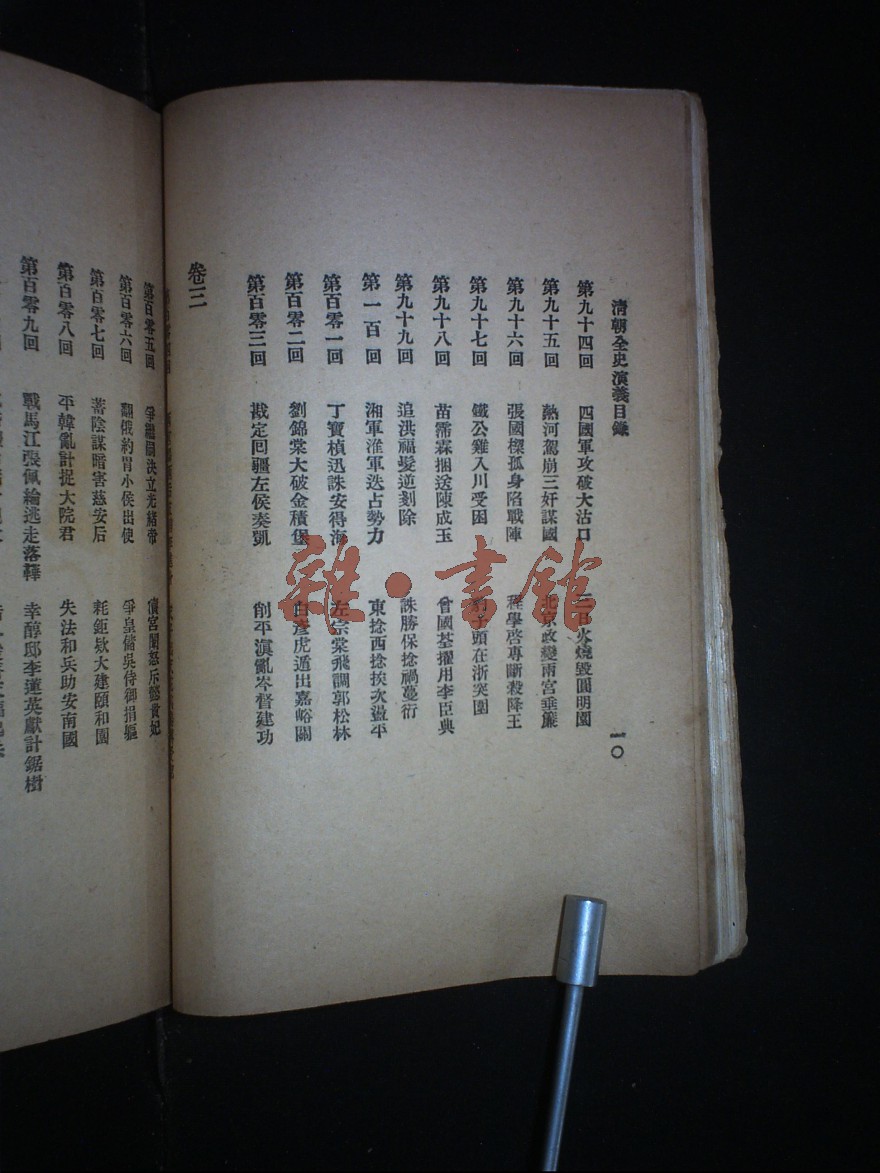 清朝全史演義目錄
一〇
第九十四回 四國軍攻破大沽口 三日火燒毀圓明園
第九十五回 熱河駕崩三奸謀國 北京政變兩宮垂簾
第九十六回 張國樑孤身陷戰陣 程學啓專斷殺降王
第九十七回 鐵公雞入川受困 豹子頭在浙突圍
第九十八回 苗霈霖捆送陳成玉 曾國荃擢用李臣典
第九十九回 追洪福髮逆剗除 誅勝保捻禍蔓衍
第一百回 湘軍淮軍迭占勢力 東捻西捻挨次盪平
第百零一回 丁寶楨迅誅安得海 左宗棠飛調郭松林
第百零二回 劉錦棠大破金積堡 白彥虎遁出嘉峪關
第百零三回 戡定回疆左侯奏凱 削平滇亂岑督建功
卷三
第百零五回 爭繼嗣決立光緒帝 瀆宮闈怒斥懿貴妃
第百零六回 翻俄約冑小侯出使 爭皇儲吳侍御捐軀
第百零七回 蓄陰謀暗害慈安后 耗鉅欵大建頤和園
第百零八回 平韓亂計捉大院君 失法和兵助安南國
第百零九回 戰馬江張佩綸逃走落鞾 幸醇邸李蓮英獻計鋸樹
雜·書館